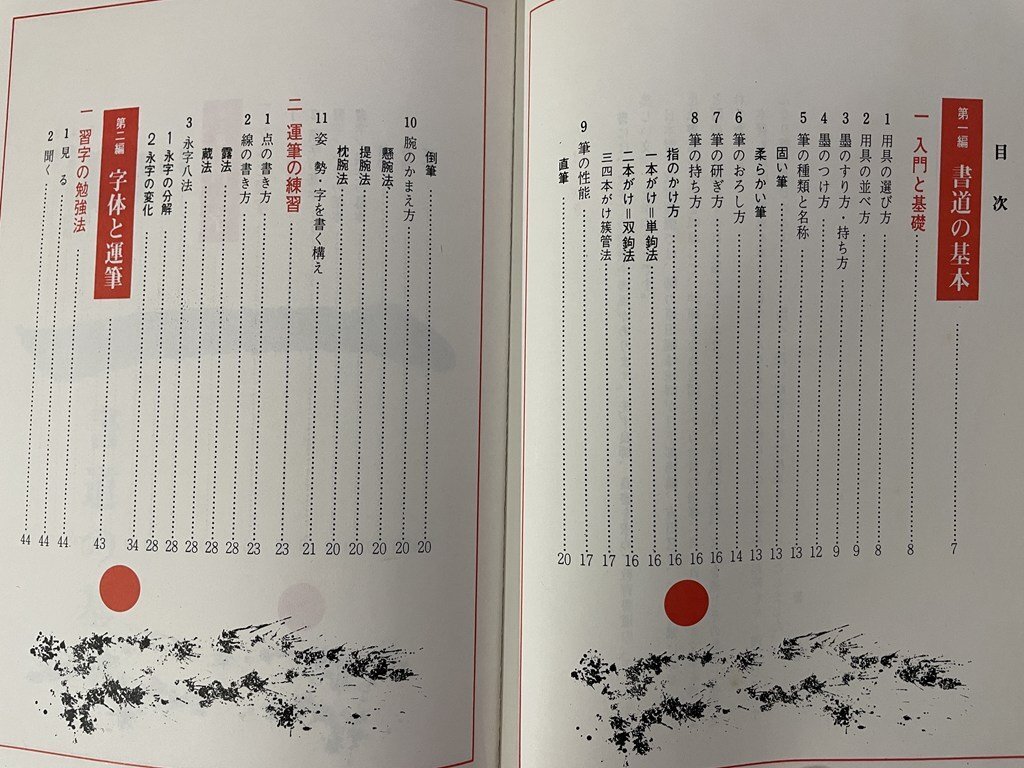 目次
第一編 書道の基本 7
一 入門と基礎 8
1 用具の選び方 8
2 用具の並べ方 9
3 墨のすり方・持ち方 9
4 墨のつけ方 12
5 筆の種類と名称 13
固い筆 13
柔らかい筆 13
6 筆のおろし方 14
7 筆の研ぎ方 16
8 筆の持ち方 16
指のかけ方 16
一本がけ＝単鉤法 16
二本がけ＝双鉤法 16
三四本がけ簇管法 17
9 筆の性能 17
直筆 20
倒筆 20
10 腕のかまえ方 20
懸腕法 20
提腕法 20
枕腕法 20
11 姿 勢・字を書く構え 21
二 運筆の練習 23
1 点の書き方 23
2 線の書き方 28
露法 28
蔵法 28
3 永字八法 28
1 永字の分解 28
2 永字の変化 34
第二編 字体と運筆 43
一 習字の勉強法 44
1 見る 44
2 聞く 44